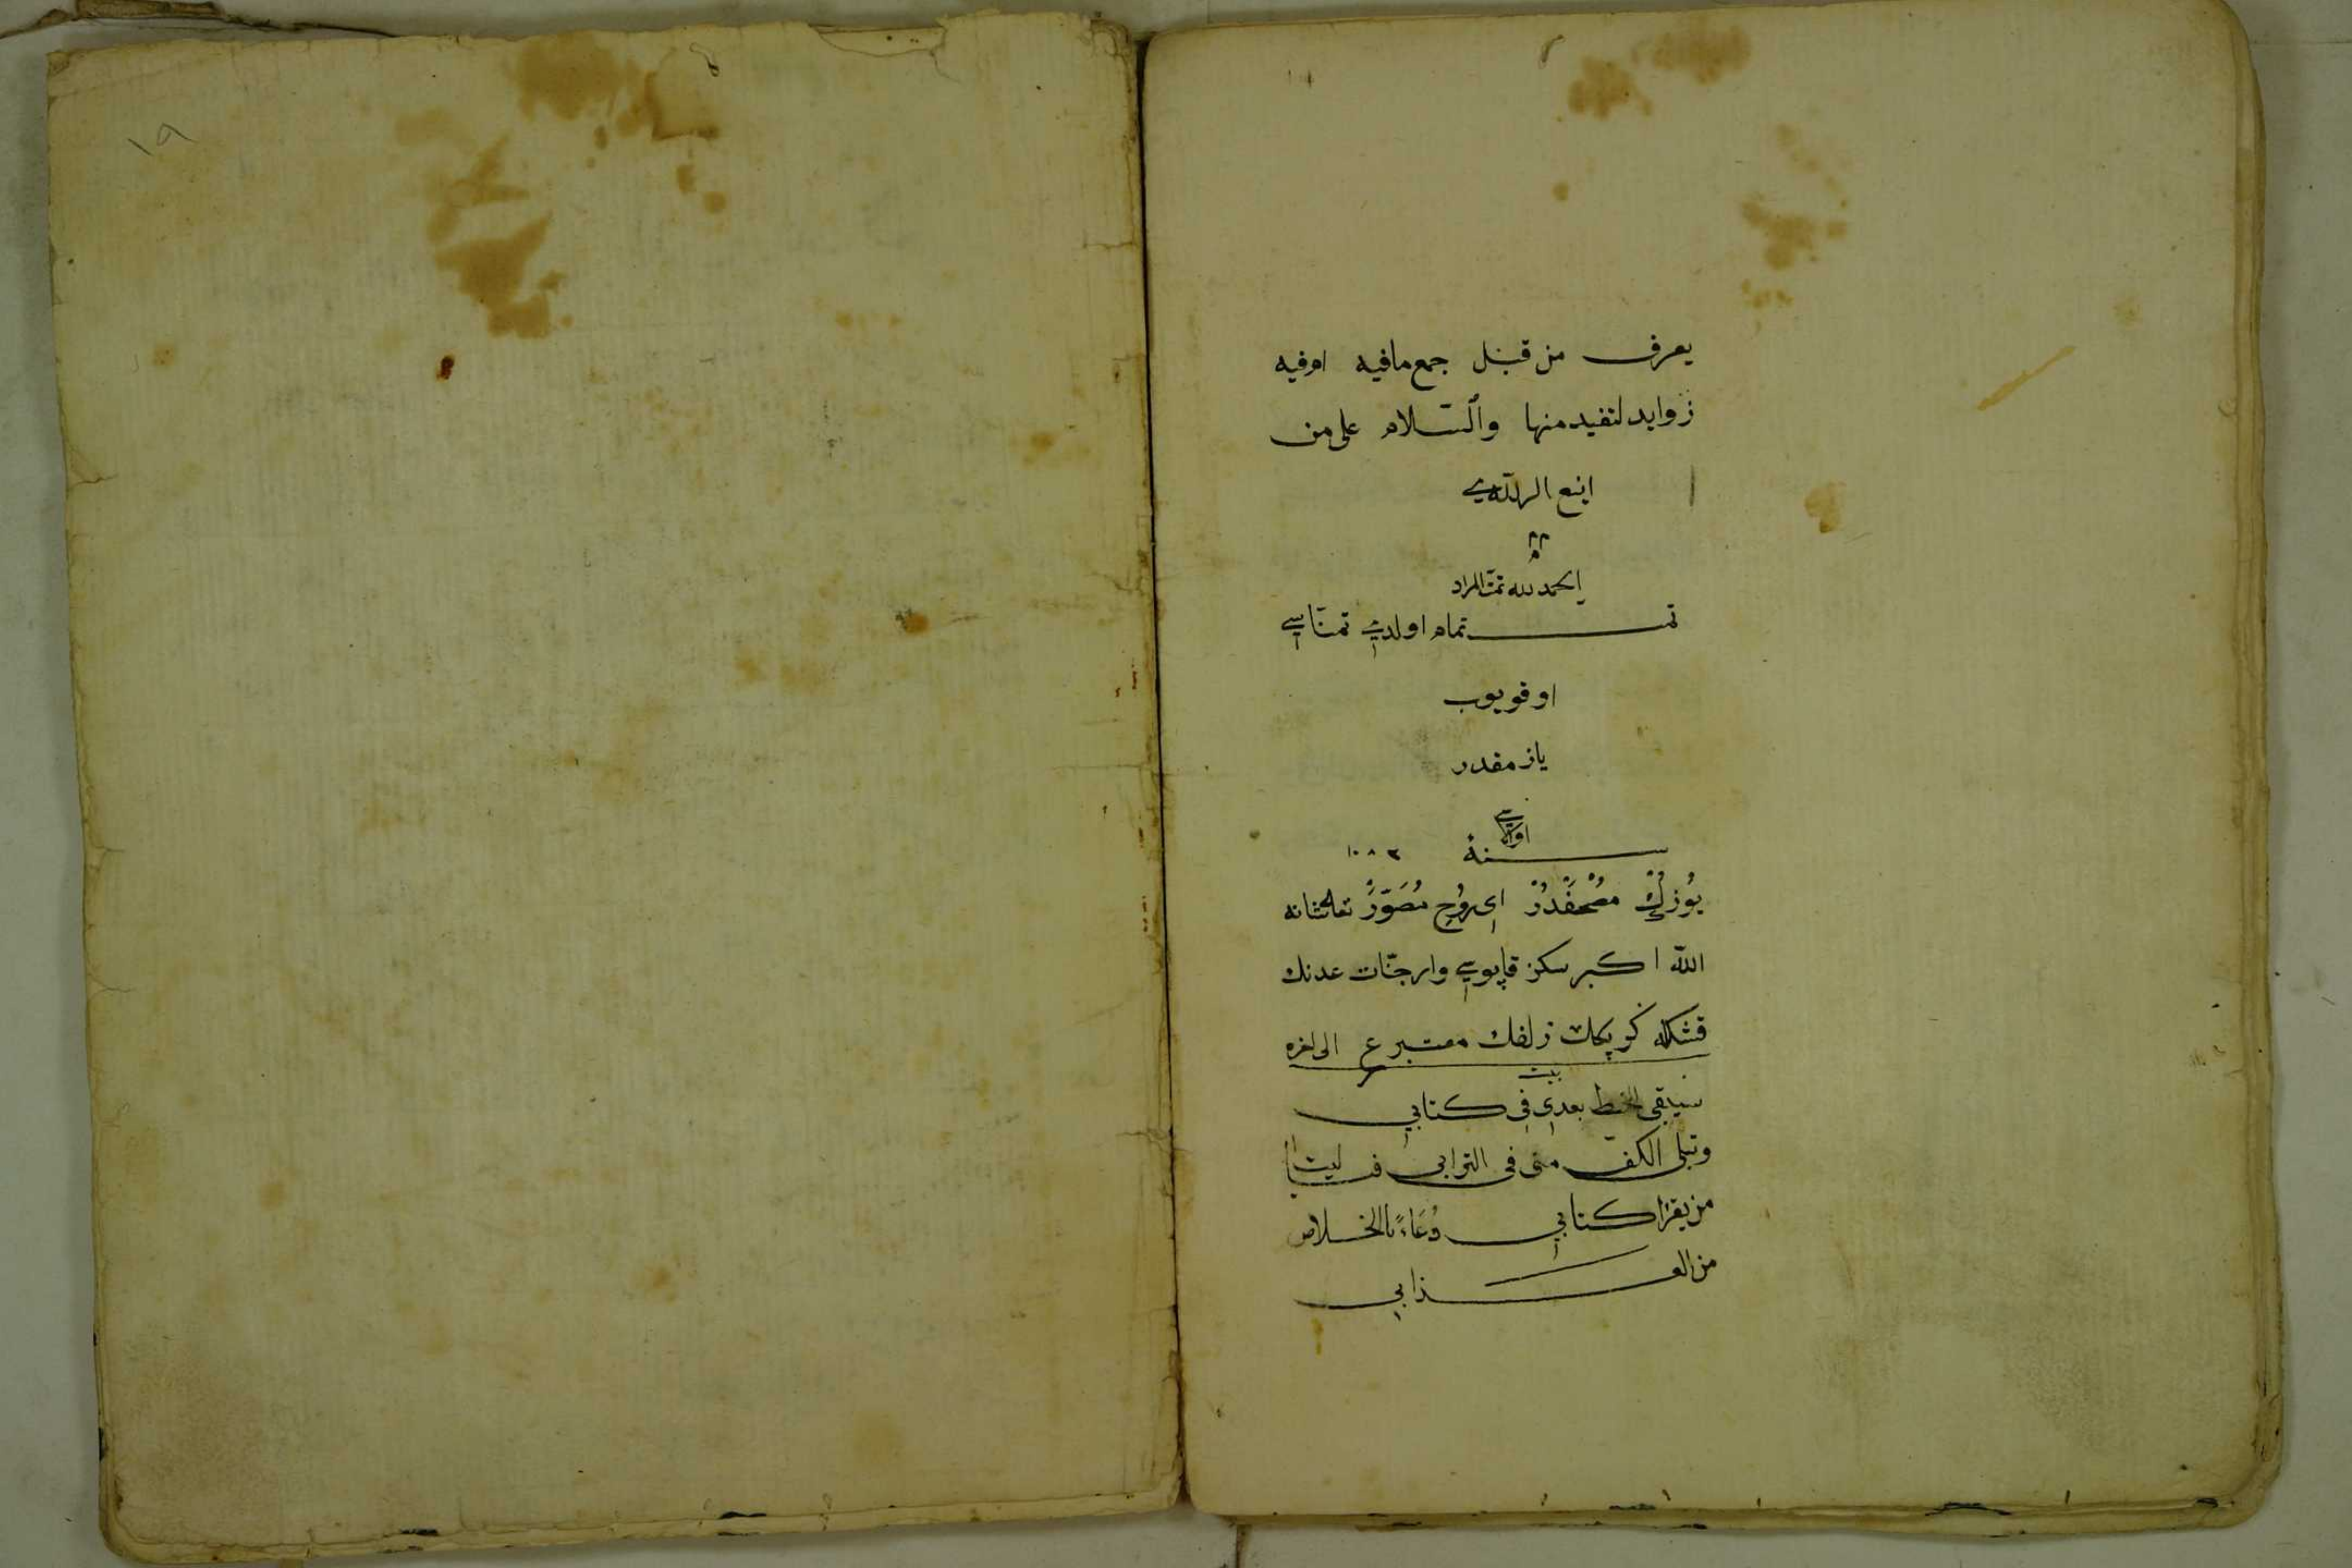 ١٩
يعرف من قبل جمع ما فيه او فيه
زوايد لتفيد منها والسلام على من
اتبع الهدى
الحمد لله تمت المراد
تمت تمام اولدي تمناسي
اوقويوب
يازمقدر
سنة ١٠٨٢
يُوزك مُصْحَفدُر اى روح مُصَوَّر
الله اكبر سكز قاپوسي وار جنّات عدنك
زلفك معتبر ع الى اخره
بيت
سيبقى الخط بعدي في كتابي
وتبلى الكف منى فى الترابى فليت
من يقرا كتابي دُعَاءً بالخلاص
من العذابي